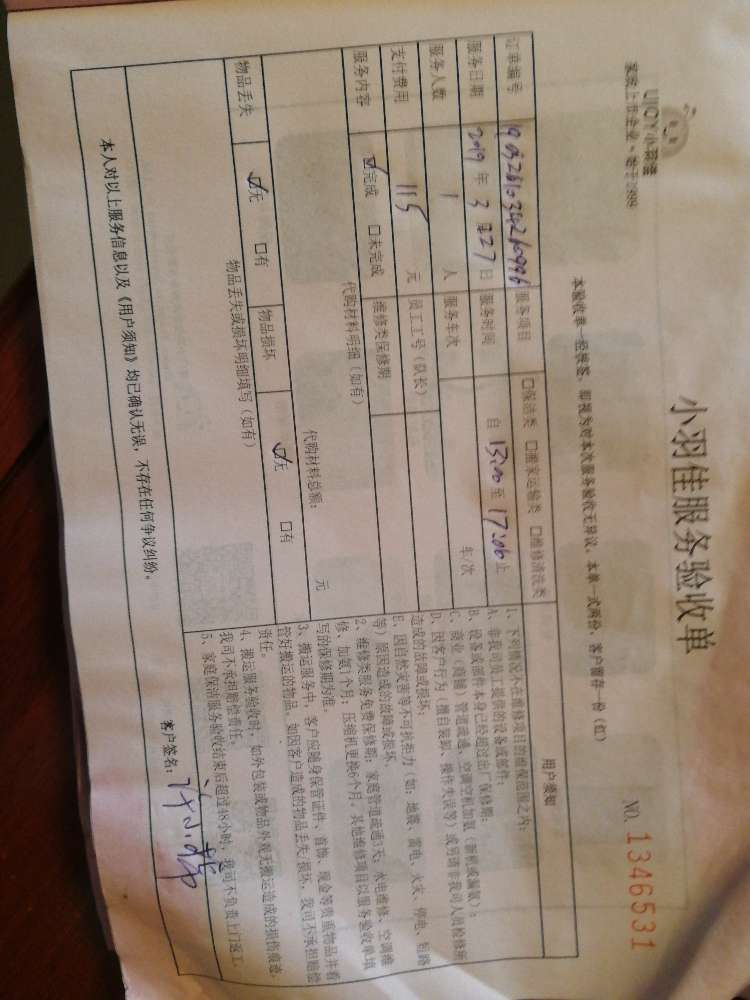 UJOY小羽佳
家政上市企业·始于1999
小羽佳服务验收单
NO. 1346531
本验收单一经签签,即视为对本次服务验收无异议。本单一式两份,客户留存一份(红)
订单编号 服务项目 □保洁类 □搬家运输类 □维修清洗类
服务日期 2019 年 3 月 27 日 服务时间 自 13:00 至 17:00 止
服务人数 1 人 服务车次 车/次
支付费用 115 元 员工工号(队长)
服务内容 ☑完成 □未完成 维修类保修期
代购材料明细(如有)
代购材料总额: 元
物品丢失 ☑无 □有 物品损坏 ☑无 □有
物品丢失或损坏明细填写(如有)
用户须知
1、下列情况不在维修项目的维保范围之内:
A、非我司员工提供的设备或部件;
B、设备或部件本身已经超过出厂保修期;
C、商业(商铺)管道疏通、空调空机加氨(新机或漏氨);
D、因客户行为(擅自装卸、操作失误等)或另请非我司人员检修所
造成的故障或损坏;
E、因自然灾害等不可抗拒力(如:地震、雷电、火灾、停电、短路
等)原因造成的故障或损坏。
2、维修类服务免费保修期:家庭管道疏通3天;水电维修、空调维
修、加氨1个月;压缩机更换6个月,其他维修项目以服务验收单填
写的保修期为准。
3、搬运服务中,客户应随身保管证件、首饰、现金等贵重物品并看
管好搬运的物品。如因客户造成的物品丢失/损坏,我司不承担赔偿
责任。
4、搬运服务验收时,如外包装或物品外观无搬运造成的损伤痕迹,
我司不承担赔偿责任。
5、家庭保洁服务验收结束后超过48小时,我司不负责上门返工。
本人对以上服务信息以及《用户须知》均已确认无误,不存在任何争议纠纷。
客户签名: